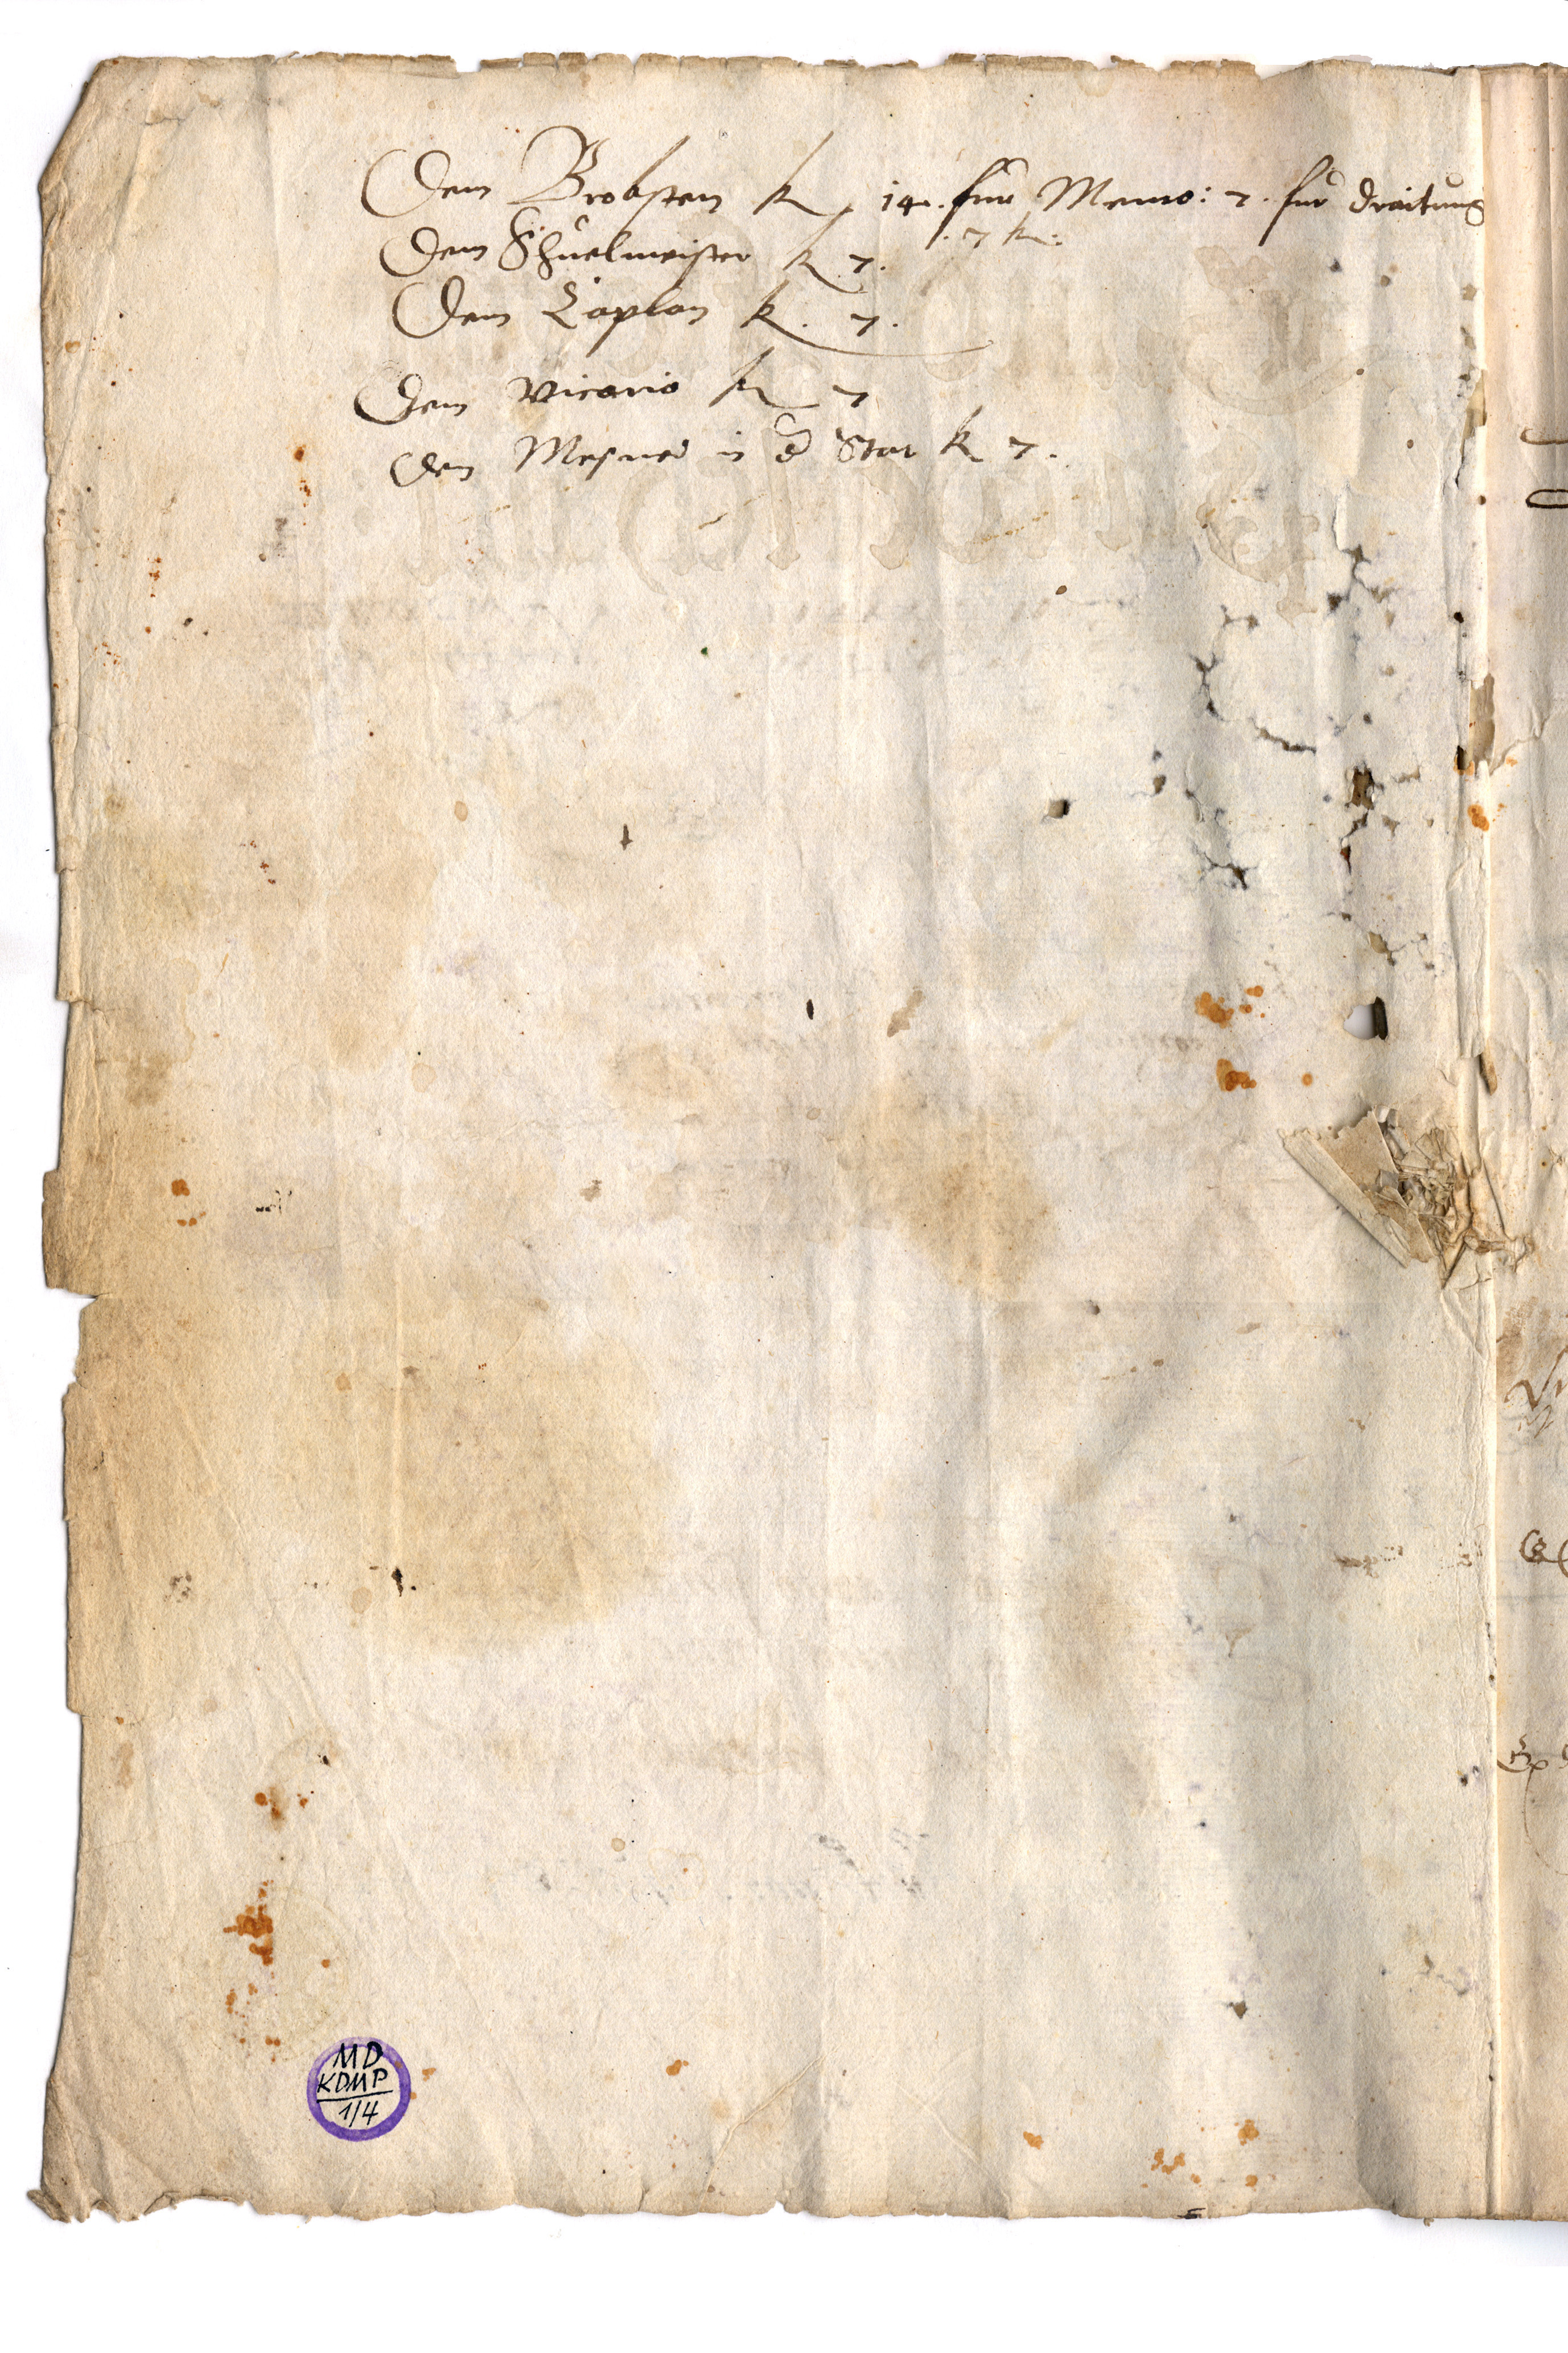 Dem Brobsten k 14. fur Memo: 7. fur draitung
. 7 k:
Dem Schuelmeister k 7.
Dem Caplan k. 7.
Dem Vicario k 7
Dem Mesner in d Stat k 7.
MD
KDMP
1/4